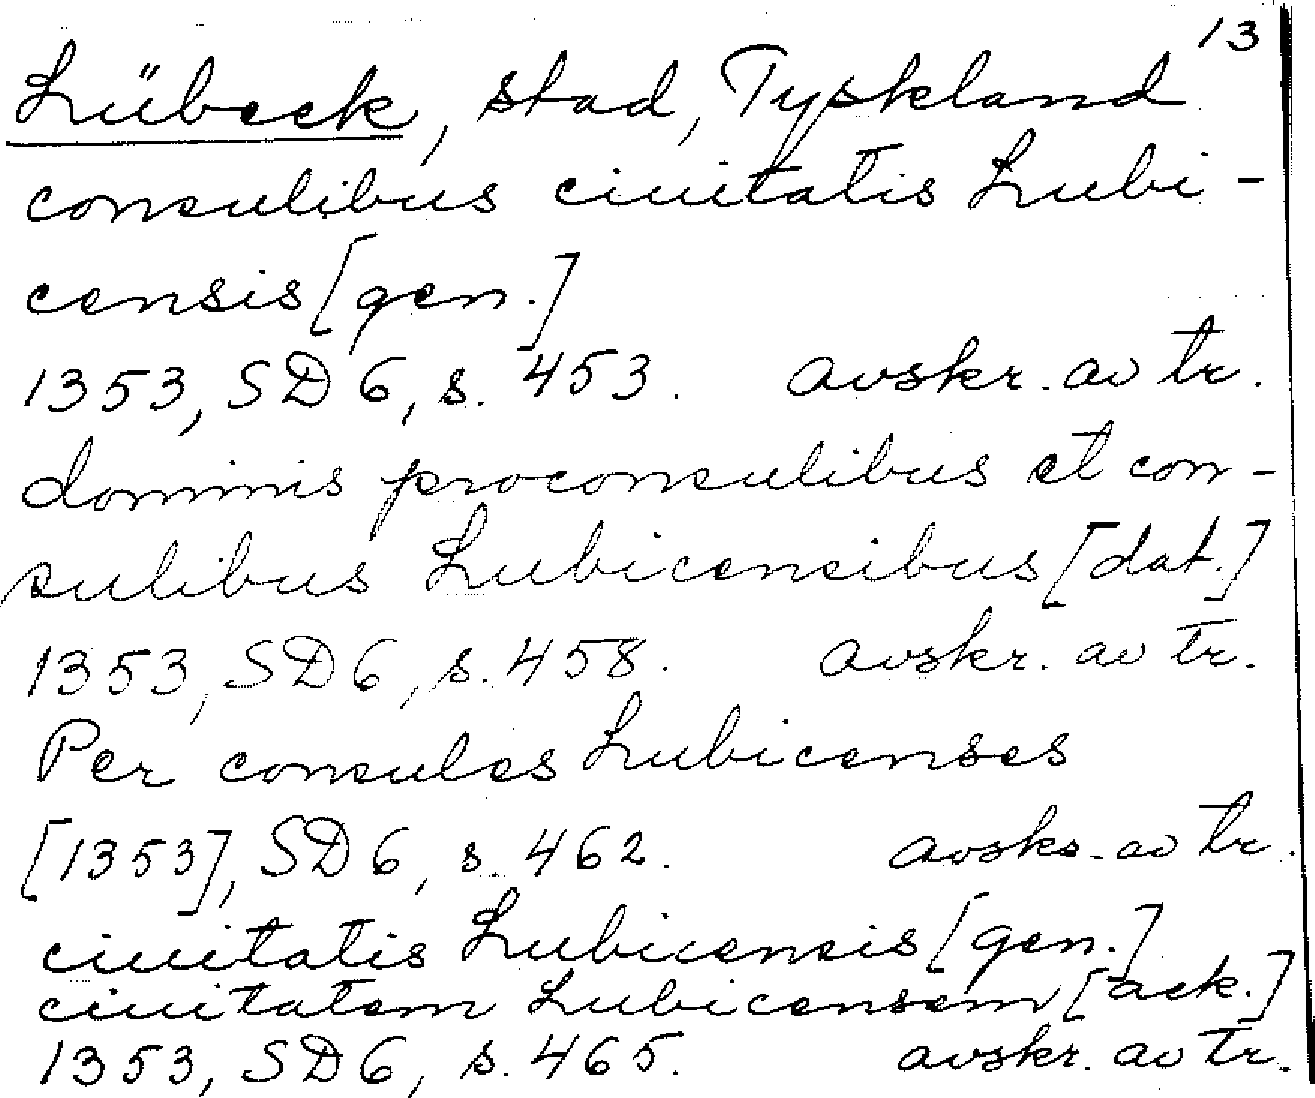 13
Lübeck, stad, Tyskland
consulibus ciuitatis Lubi-
censis [gen.]
1353, SD 6, s. 453. avskr. av tr.
dominis proconsulibus et con-
sulibus Lubicensibus [dat.]
1353, SD 6, s. 458. avskr. av tr.
Per consules Lubicenses
[1353], SD 6, s. 462. avskr. av tr.
ciuitatis Lubicensis [gen.]
ciuitatem Lubicensem [ack.]
1353, SD 6, s. 465. avskr. av tr.